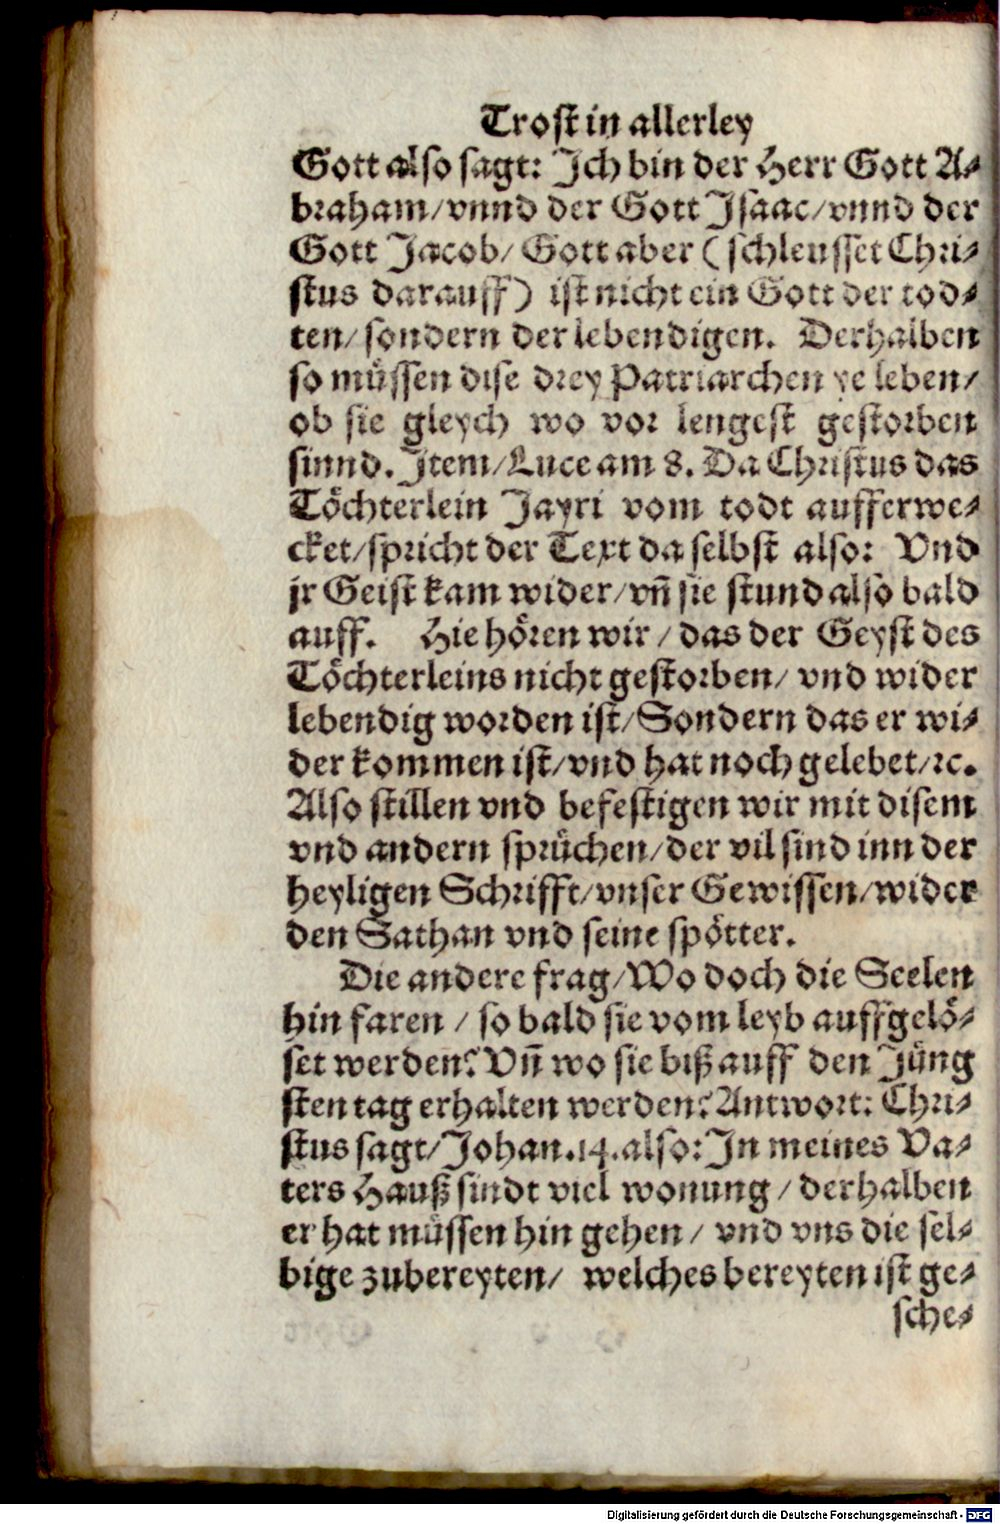 Trost in allerley
Gott also sagt: Ich bin der Herr Gott A-
braham/vnnd der Gott Isaac/vnnd der
Gott Jacob/ Gott aber (schleusset Chri-
stus darauff) ist nicht ein Gott der tod-
ten/sondern der lebendigen. Derhalben
so müssen dise drey Patriarchen ye leben/
ob sie gleych wo vor lengest gestorben
sinnd. Item/Luce am 8. Da Christus das
Töchterlein Jayri vom todt aufferwe-
cket/spricht der Text daselbst also: Vnd
jr Geist kam wider/vñ sie stund also bald
auff. Hie hören wir/das der Geyst des
Töchterleins nicht gestorben/ vnd wider
lebendig worden ist/Sondern das er wi-
der kommen ist/vnd hat noch gelebet/ꝛc.
Also stillen vnd befestigen wir mit disem
vnd andern sprüchen/der vil sind inn der
heyligen Schrifft/vnser Gewissen/wider
den Sathan vnd seine spötter.
Die andere frag/Wo doch die Seelen
hin faren / so bald sie vom leyb auffgelö-
set werden? Vñ wo sie biß auff den Jüng
sten tag erhalten werden? Antwort: Chri-
stus sagt/Johan.14.also: In meines Va-
ters Hauß sindt viel wonung / derhalben
er hat müssen hin gehen/ vnd vns die sel-
bige zubereyten/ welches bereyten ist ge-
sche-
Digitalisierung gefördert durch die Deutsche Forschungsgemeinschaft - DFG